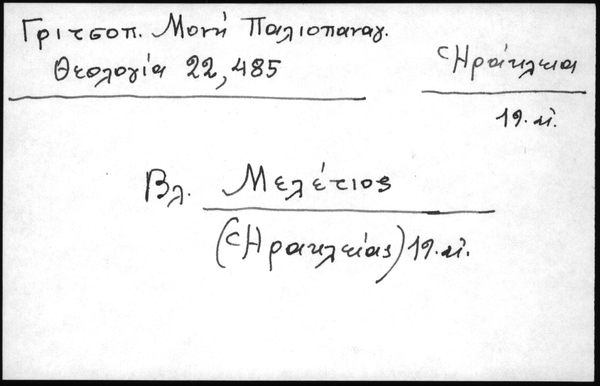 Γριτσοπ. Μονή Παλιοπαναγ.
Θεολογία 22, 485
Ἡράκλεια
19. αἰ.
Βλ. Μελέτιος
(Ἡρακλείας) 19. αἰ.